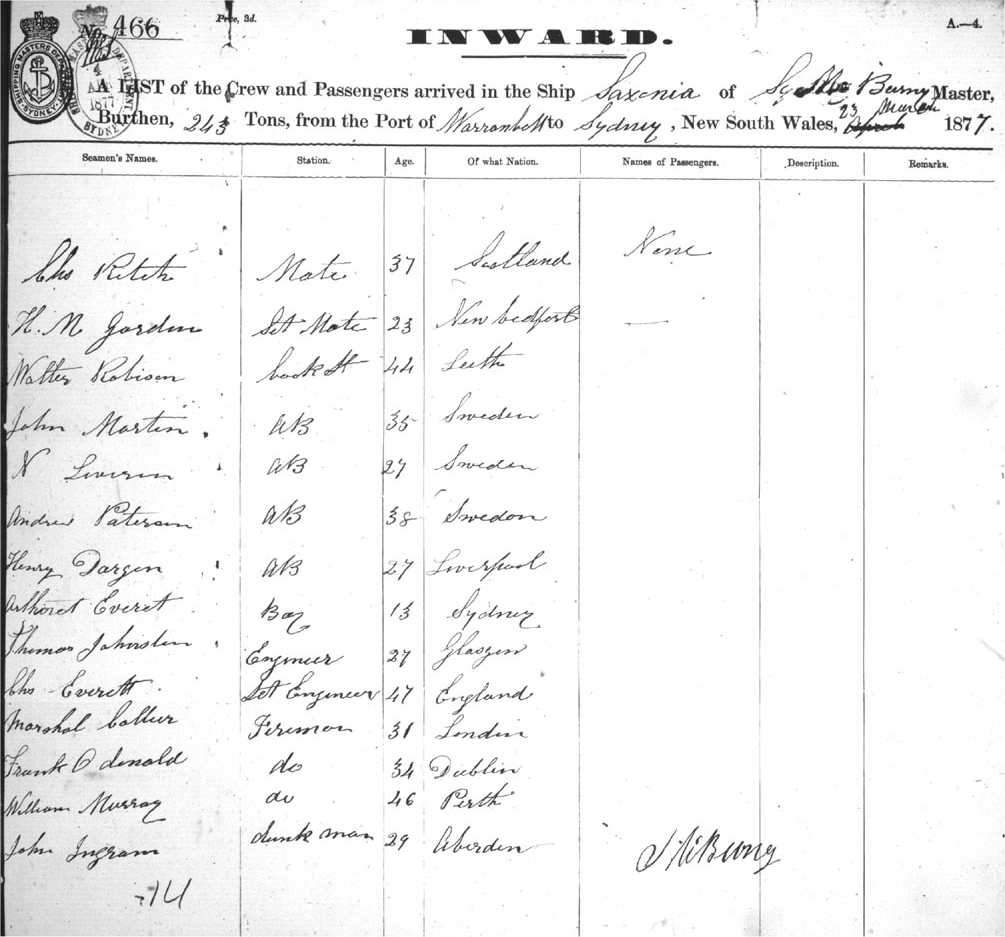 No. 466
Price, 3d.
INWARD.
A.—4.
A LIST of the Crew and Passengers arrived in the Ship Saxonia of Burny Master,
Burthen, 243 Tons, from the Port of to Sydney, New South Wales, 23 1877.
Seamen's Names. Station. Age. Of what Nation. Names of Passengers. Description. Remarks.
Chs Mate 37 Scotland None
H. M Gordon Mate 23 New bedfort —
Walter Robison 44 Leith
John Martin AB 35 Sweden
N AB 27 Sweden
Andrew Paterson AB 38 Swedon
Henry Dargen AB 27 Liverpool
Everet Boy 13 Sydney
Thomas Johnston Engineer 27 Glasgow
Chs Everett Engineer 47 England
Marshal Collier Fireman 31 London
Frank O donald do 34 Dublin
William Murray do 46 Perth
John Ingram man 29 Aberden
14